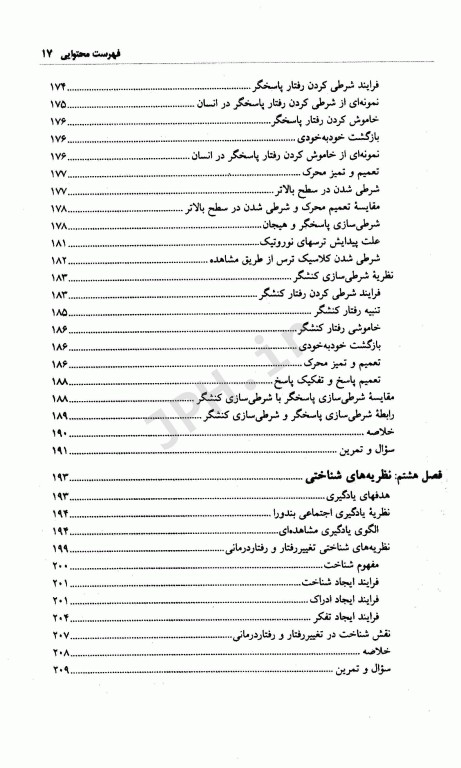 فهرست محتوایی ۱۷
فرایند شرطی کردن رفتار پاسخگر ۱۷۴
نمونه‌ای از شرطی کردن رفتار پاسخگر در انسان ۱۷۵
خاموش کردن رفتار پاسخگر ۱۷۶
بازگشت خودبه‌خودی ۱۷۶
نمونه‌ای از خاموش کردن رفتار پاسخگر در انسان ۱۷۶
تعمیم و تمیز محرک ۱۷۷
شرطی شدن در سطح بالاتر ۱۷۷
مقایسهٔ تعمیم محرک و شرطی شدن در سطح بالاتر ۱۷۸
شرطی‌سازی پاسخگر و هیجان ۱۷۸
علت پیدایش ترسهای نوروتیک ۱۸۱
شرطی شدن کلاسیک ترس از طریق مشاهده ۱۸۲
نظریهٔ شرطی‌سازی کنشگر ۱۸۳
فرایند شرطی کردن رفتار کنشگر ۱۸۳
تنبیه رفتار کنشگر ۱۸۵
خاموشی رفتار کنشگر ۱۸۶
بازگشت خودبه‌خودی ۱۸۶
تعمیم و تمیز محرک ۱۸۶
تعمیم پاسخ و تفکیک پاسخ ۱۸۸
مقایسهٔ شرطی‌سازی پاسخگر با شرطی‌سازی کنشگر ۱۸۸
رابطهٔ شرطی‌سازی پاسخگر و شرطی‌سازی کنشگر ۱۸۹
خلاصه ۱۹۰
سؤال و تمرین ۱۹۱
فصل هشتم: نظریه‌های شناختی ۱۹۳
هدفهای یادگیری ۱۹۳
نظریهٔ یادگیری اجتماعی بندورا ۱۹۴
الگوی یادگیری مشاهده‌ای ۱۹۴
نظریه‌های شناختی تغییررفتار و رفتاردرمانی ۱۹۹
مفهوم شناخت ۲۰۰
فرایند ایجاد شناخت ۲۰۱
فرایند ایجاد ادراک ۲۰۱
فرایند ایجاد تفکر ۲۰۴
نقش شناخت در تغییررفتار و رفتاردرمانی ۲۰۷
خلاصه ۲۰۸
سؤال و تمرین ۲۰۹
JPH.ir